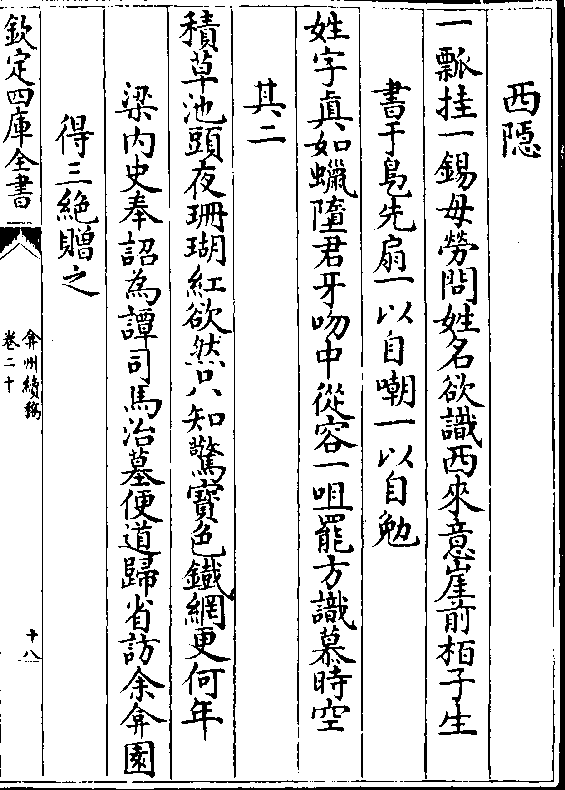 西隠
一瓢挂一錫毋勞問姓名欲識西來意崖前栢子生
書于鳬先扇一以自嘲一以自勉
姓字真如蠟墮君牙吻中從容一咀罷方識慕時空
其二
積草池頭夜珊瑚紅欲然只知驚寶色鐵網更何年
梁内史奉詔為譚司馬治墓便道歸省訪余弇園
得三絶贈之
欽定四庫全書
弇州續稿
卷二十
十八